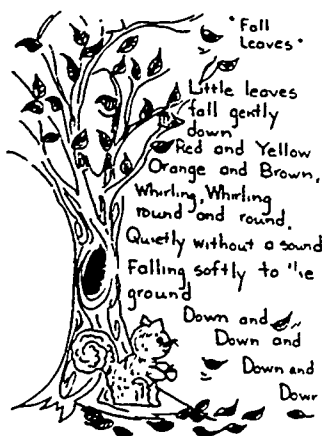 "Fall
Leaves"
Little leaves
fall gently
down
Red and Yellow
Orange and Brown,
Whirling, Whirling
round and round,
Quietly without a sound
Falling softly to "ie
ground
Down and
Down and
Down and
Dowr